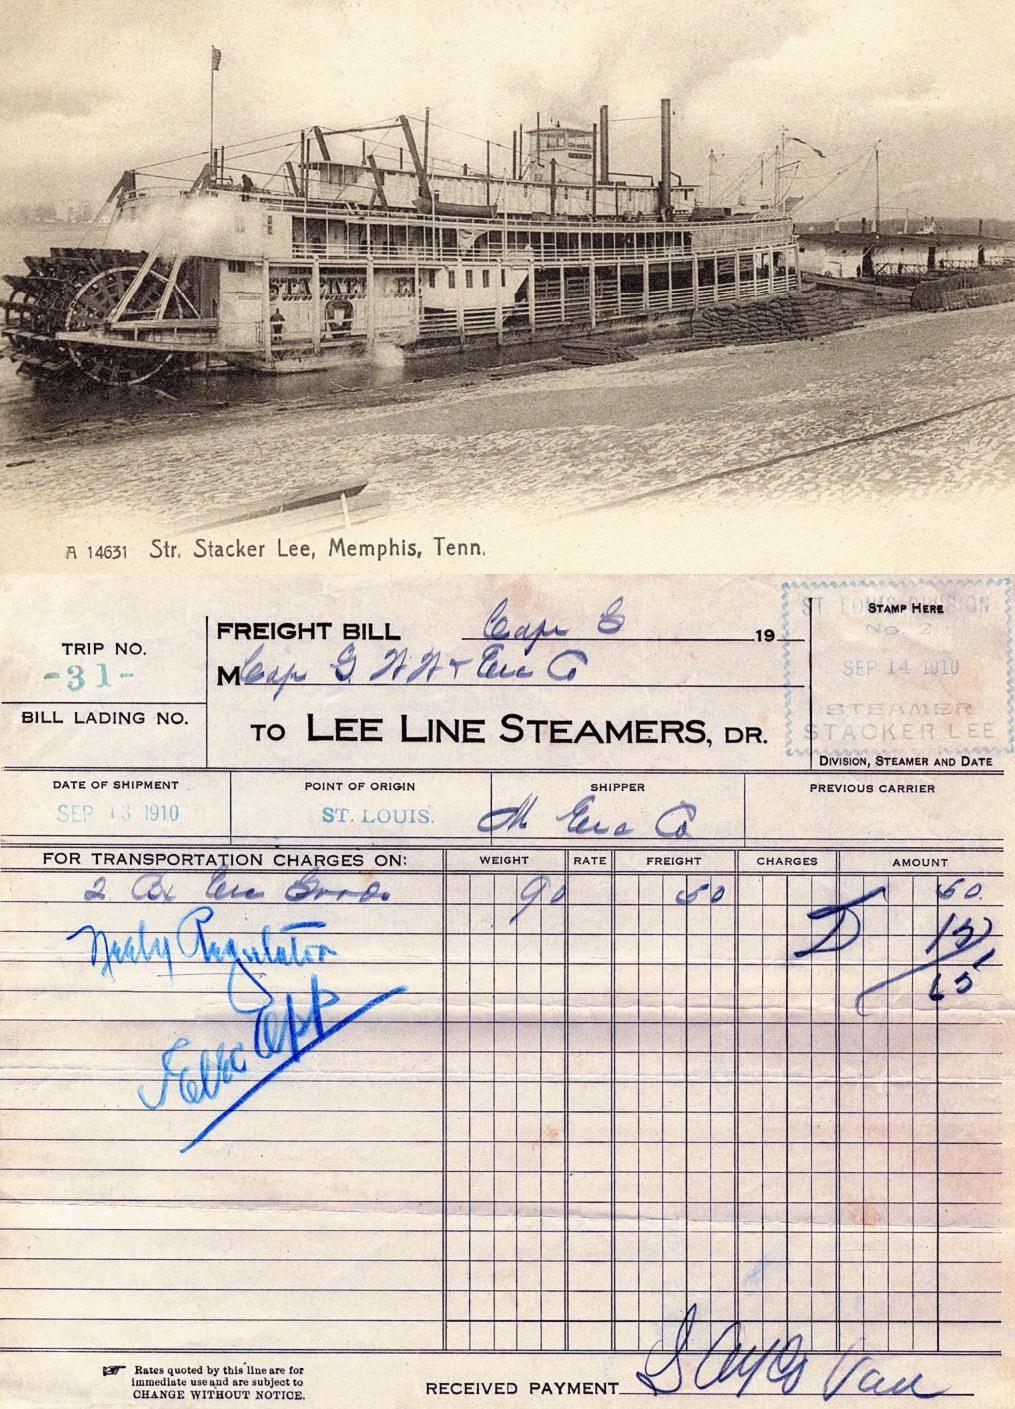 STACKER LEE
A 14631 Str. Stacker Lee, Memphis, Tenn.
TRIP NO.
-31-
BILL LADING NO.
FREIGHT BILL Cape G 19
M Cape G W W & Elec Co
TO LEE LINE STEAMERS, DR.
STAMP HERE
ST. LOUIS DIVISION
No. 2
SEP 14 1910
STEAMER
STACKER LEE
DIVISION, STEAMER AND DATE
DATE OF SHIPMENT
SEP 13 1910
POINT OF ORIGIN
ST. LOUIS.
SHIPPER
M Elec Co
PREVIOUS CARRIER
FOR TRANSPORTATION CHARGES ON: WEIGHT RATE FREIGHT CHARGES AMOUNT
2 Bx Elec Goods 90 50 50
D 15
65
Regulator
Rates quoted by this line are for
immediate use and are subject to
CHANGE WITHOUT NOTICE.
RECEIVED PAYMENT